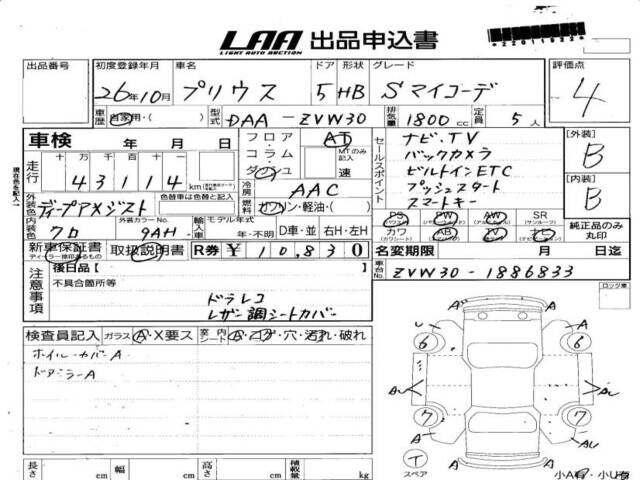 LAA 出品申込書
LIGHT AUTO AUCTION
*220119221*
出品番号 初度登録年月 車名 ドア 形状 グレード 評価点
26年10月 プリウス 5 HB Sマイコーデ 4
車歴 自家用・( ) 型式 DAA-ZVW30 排気量 1800 cc 定員 5人
車検 年 月 日
フロア・コラム・ダッシュ AT MTのみ記入 速
セールスポイント
ナビ.TV
バックカメラ
ビルトインETC
プッシュスタート
スマートキー
[外装] B
[内装] B
現在色を記入
走行 十 万 千 百 十
43114 km
冷房 AAC
外装色 ディープアメジスト 色替車は色替と記入
燃料 ガソリン・軽油・( )
内装色 クロ 外装カラーNo. 9AH- 輸入車 モデル年式 年・不明 D車・並 右H・左H
PS PW AW SR
カワ AB TV ナビ
純正品のみ丸印
新車保証書 取扱説明書 R券 ¥10,830
名変期限 月 日迄
車台No. ZVW30-1886833
注意事項
後日品 [ ]
不具合箇所等
ドラレコ
レザー調シートカバー
ロック車
検査員記入 ガラス A・X要ス 室内 シート A・コゲ・穴・汚れ・破れ
ホイルカバーA
ドアミラーA
A A
U A
6 6
AU AU
7 7
A AU
A A
イ
スペア
小A有・小U有
長さ cm 幅 cm 高さ cm 積載量 kg